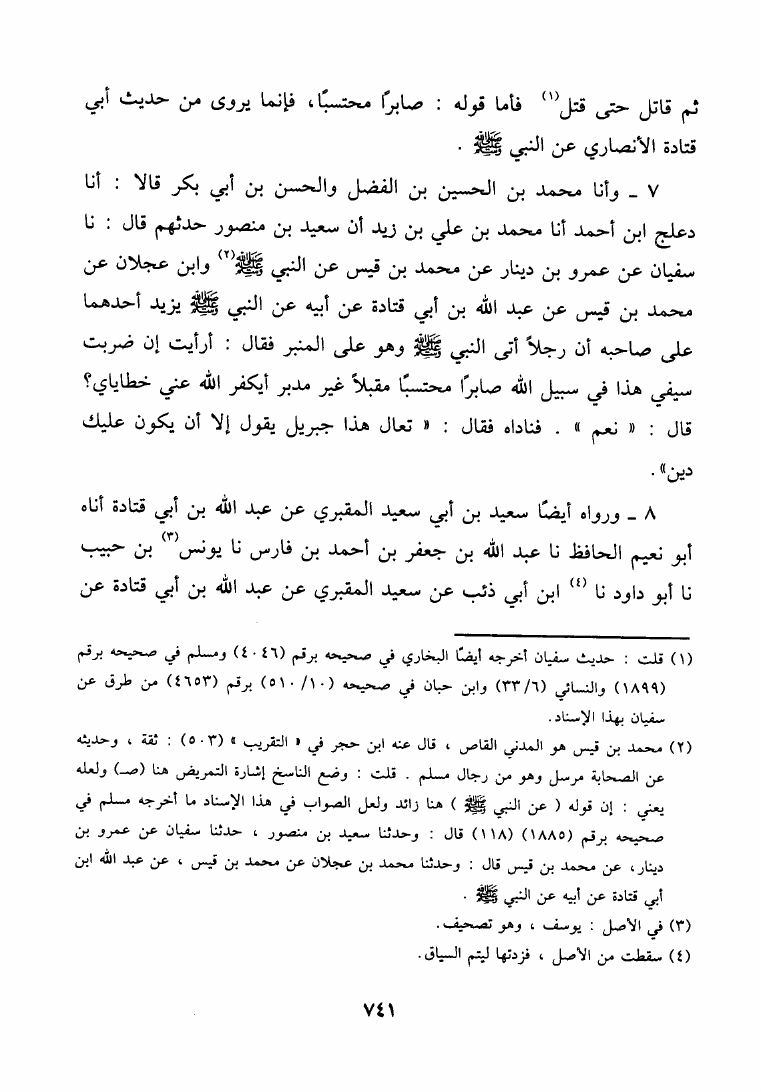 ثم قاتل حتى قتل(١) فأما قوله : صابرًا محتسبًا، فإنما يروى من حديث أبي
قتادة الأنصاري عن النبي ﷺ .
٧ ـ وأنا محمد بن الحسين بن الفضل والحسن بن أبي بكر قالا : أنا
دعلج ابن أحمد أنا محمد بن علي بن زيد أن سعيد بن منصور حدثهم قال : نا
سفيان عن عمرو بن دينار عن محمد بن قيس عن النبي ﷺ(٢) وابن عجلان عن
محمد بن قيس عن عبد الله بن أبي قتادة عن أبيه عن النبي ﷺ يزيد أحدهما
على صاحبه أن رجلاً أتى النبي ﷺ وهو على المنبر فقال : أرأيت إن ضربت
سيفي هذا في سبيل الله صابرًا محتسبًا مقبلاً غير مدبر أيكفر الله عني خطاياي؟
قال : « نعم » . فناداه فقال : « تعال هذا جبريل يقول إلا أن يكون عليك
دين».
٨ ـ ورواه أيضًا سعيد بن أبي سعيد المقبري عن عبد الله بن أبي قتادة أناه
أبو نعيم الحافظ نا عبد الله بن جعفر بن أحمد بن فارس نا يونس(٣) بن حبيب
نا أبو داود نا (٤) ابن أبي ذئب عن سعيد المقبري عن عبد الله بن أبي قتادة عن
(١) قلت : حديث سفيان أخرجه أيضًا البخاري في صحيحه برقم (٤٠٤٦) ومسلم في صحيحه برقم
(١٨٩٩) والنسائي (٣٣/٦) وابن حبان في صحيحه (٥١٠/١٠) برقم (٤٦٥٣) من طرق عن
سفيان بهذا الإسناد.
(٢) محمد بن قيس هو المدني القاص ، قال عنه ابن حجر في « التقريب » (٥٠٣) : ثقة ، وحديثه
عن الصحابة مرسل وهو من رجال مسلم . قلت : وضع الناسخ إشارة التمريض هنا (صـ) ولعله
يعني : إن قوله ( عن النبي ﷺ ) هنا زائد ولعل الصواب في هذا الإسناد ما أخرجه مسلم في
صحيحه برقم (١٨٨٥) (١١٨) قال : وحدثنا سعيد بن منصور ، حدثنا سفيان عن عمرو بن
دينار، عن محمد بن قيس قال : وحدثنا محمد بن عجلان عن محمد بن قيس ، عن عبد الله ابن
أبي قتادة عن أبيه عن النبي ﷺ .
(٣) في الأصل : يوسف ، وهو تصحيف.
(٤) سقطت من الأصل ، فزدتها ليتم السياق.
٧٤١